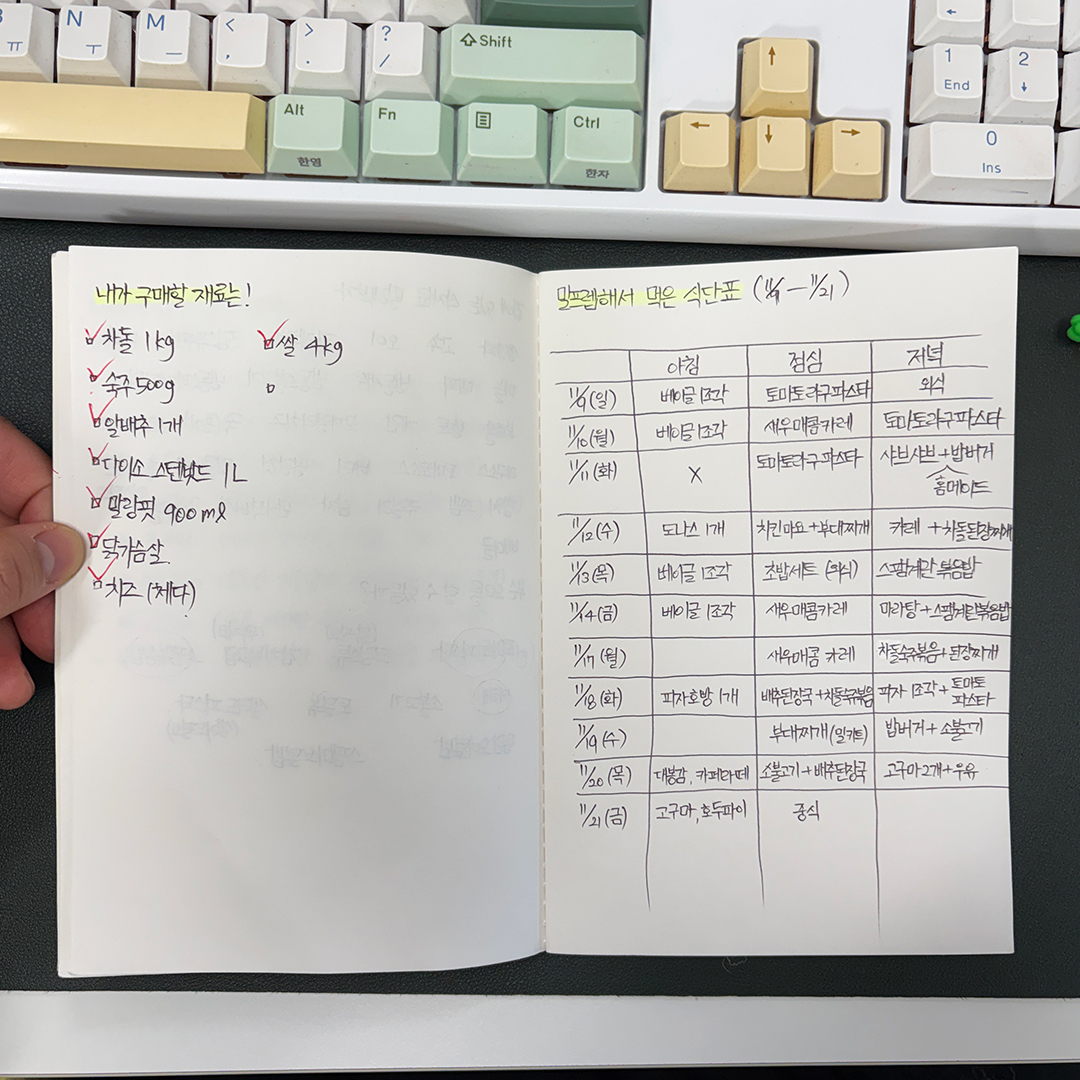 N ㅠ ㅜ
M ㅡ
< ,
> .
? /
Shift
Alt 한영
Fn
Ctrl 한자
1 End
2
0 Ins
내가 구매할 재료는!
차돌 1kg
쌀 4kg
숙주 500g
알배추 1개
다이소 스텐밧드 1L
말랑핏 900ml
닭가슴살
치즈 (체다)
밀프렙해서 먹은 식단표 (11/9 — 11/21)
아침 점심 저녁
11/9 (일) 베이글 1조각 토마토라구파스타 외식
11/10 (월) 베이글 1조각 새우매콤카레 토마토라구파스타
11/11 (화) X 토마토라구파스타 샤브샤브 + 밥버거
홈메이드
11/12 (수) 도나스 1개 치킨마요+부대찌개 카레 + 차돌된장찌개
11/13 (목) 베이글 1조각 초밥세트 (외식) 스팸계란 볶음밥
11/14 (금) 베이글 1조각 새우매콤카레 마라탕+스팸계란볶음밥
11/17 (월) 새우매콤 카레 차돌숙주볶음+된장찌개
11/18 (화) 피자호빵 1개 배추된장국+차돌숙주볶음 피자 1조각+토마토
파스타
11/19 (수) 부대찌개(밀키트) 밥버거+소불고기
11/20 (목) 대봉감, 카페라떼 소불고기+배추된장국 고구마2개+우유
11/21 (금) 고구마, 호두파이 중식